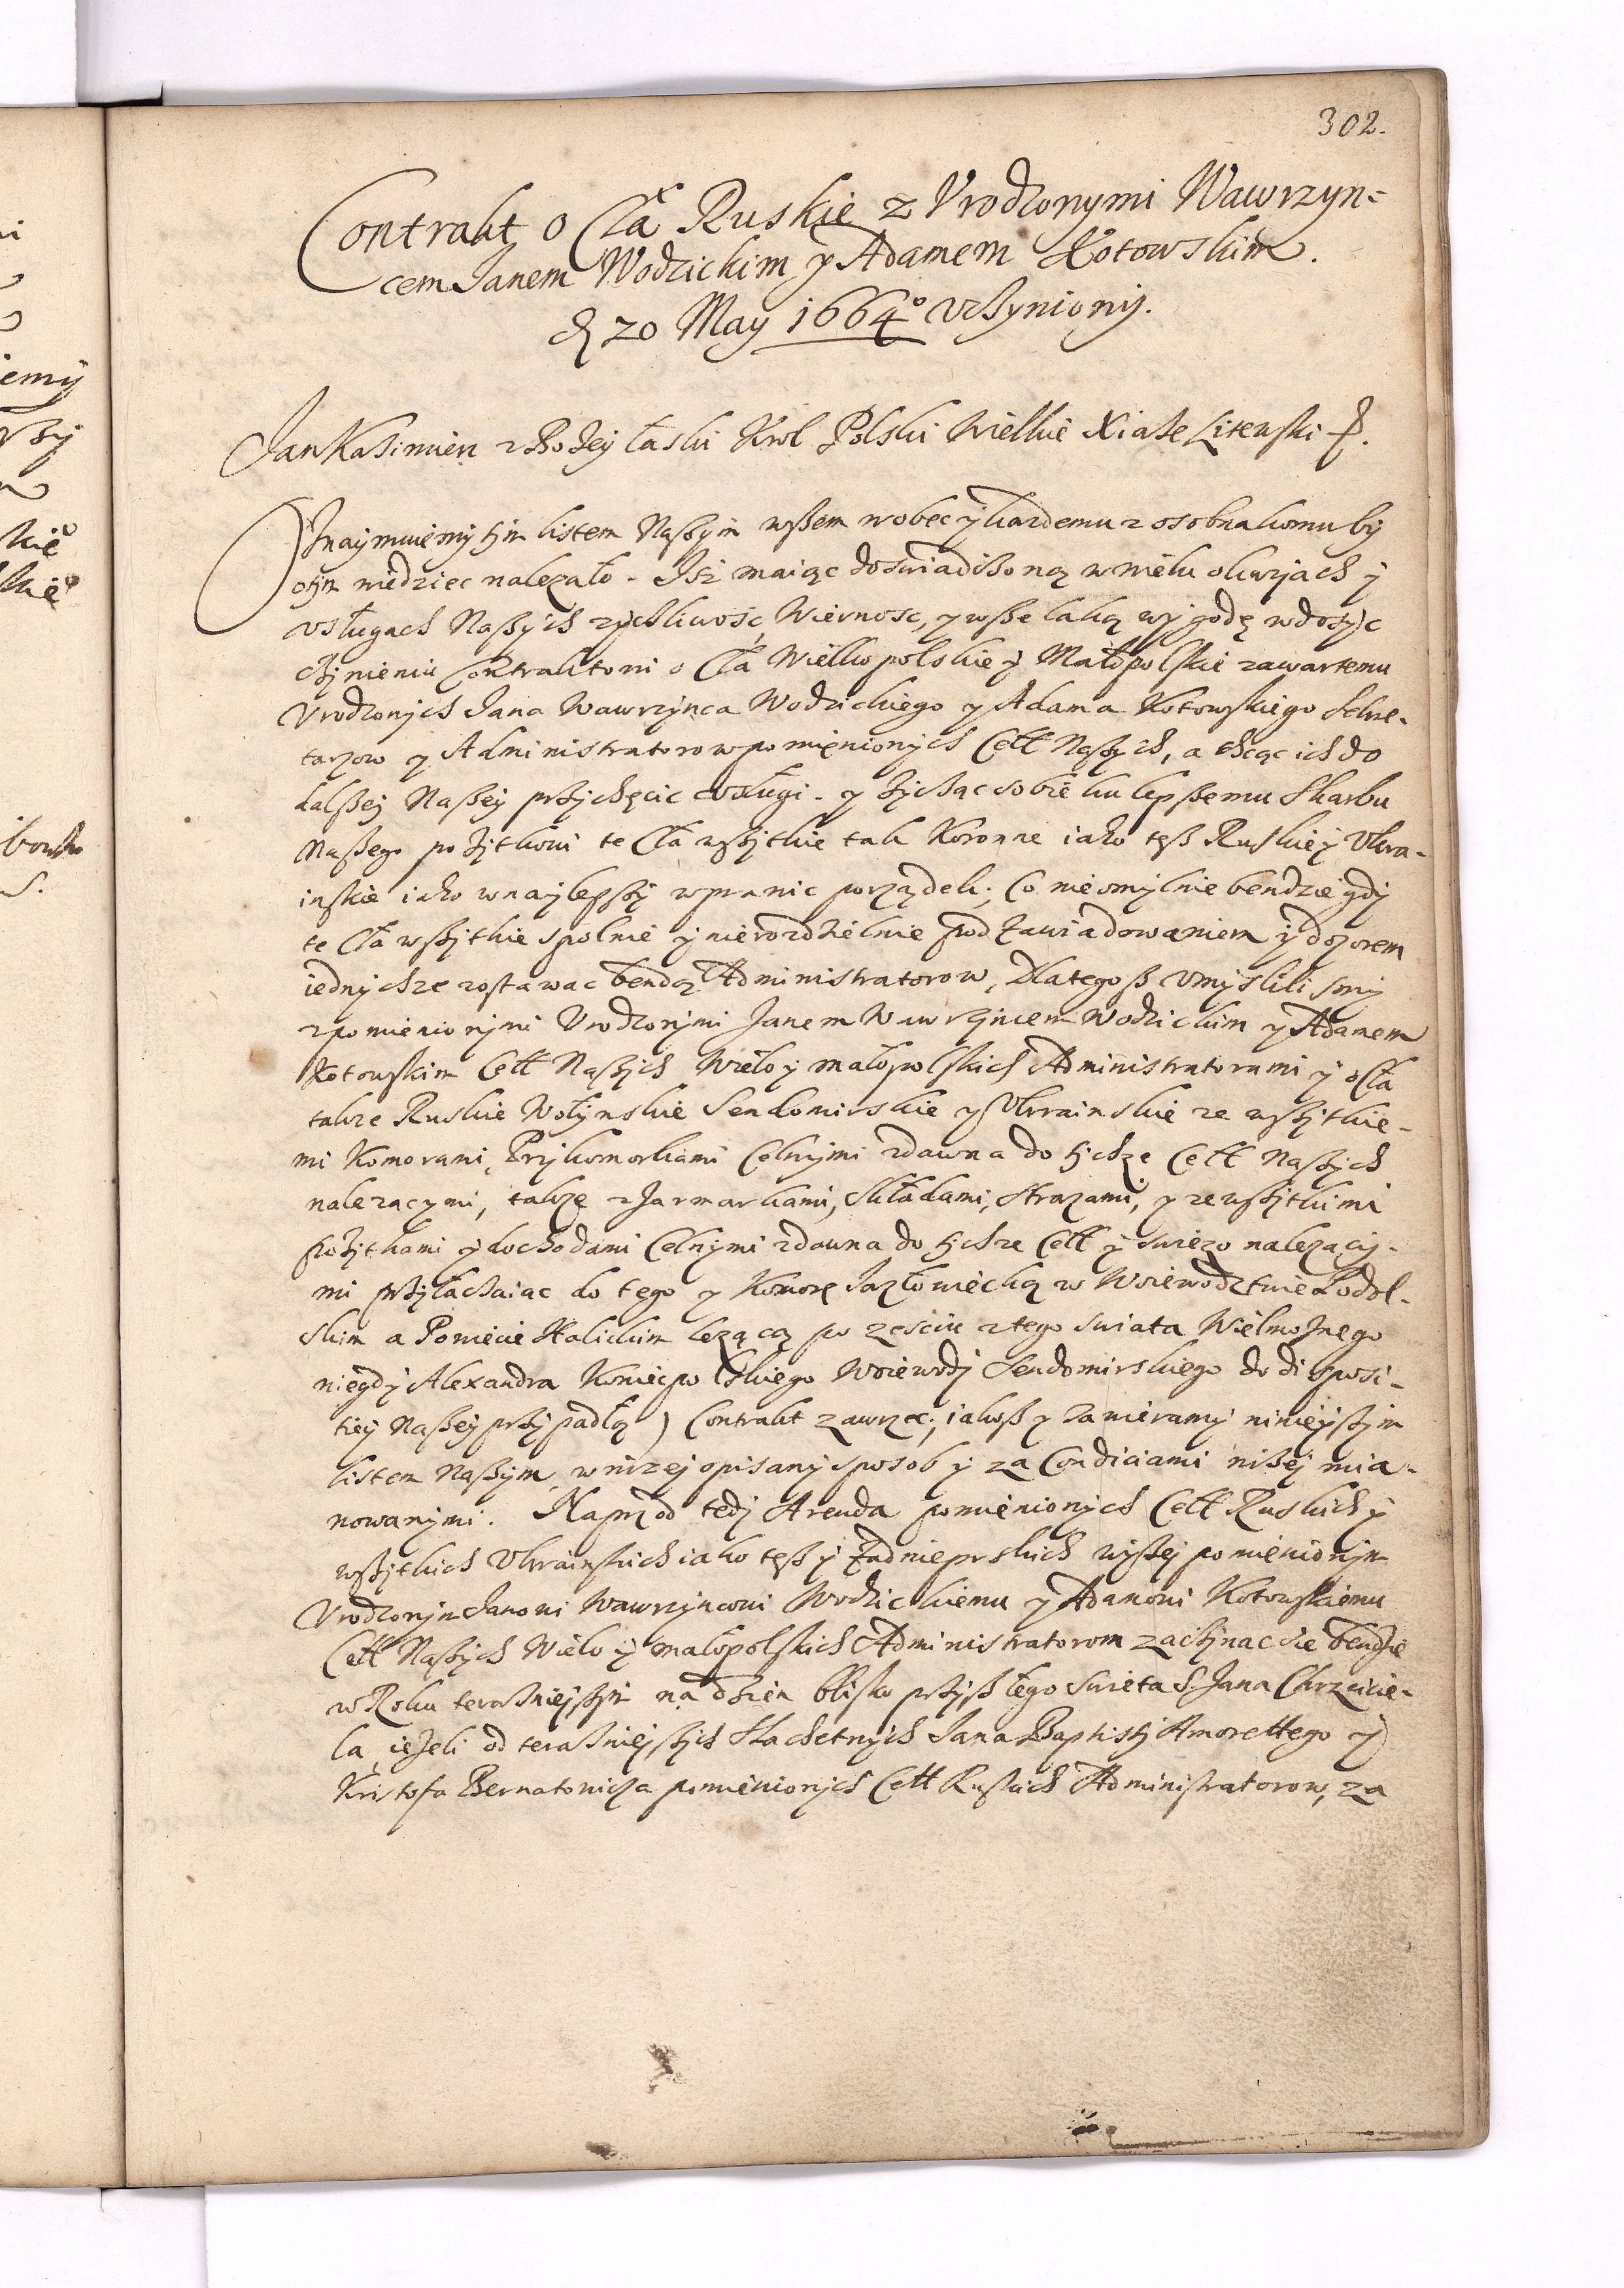 302.
Contrakt o Cła Ruskie z Vrodzonymi Wawrzyn=
cem Janem Wodzickim y Adamem Kotowskim.
d 20 May 1664° vczÿnionÿ.
Jan Kazimierz z Bozey łaski Krol Polski Wielkie Xiąże Litewski
Znaÿmuiemÿ tÿm listem Naszÿm wszem wobec ÿ kazdemu z osobna komu bÿ
o tÿm wiedziec nalezało. Isz maiąc doswiadczoną w wielu okazjach ÿ
vsługach Naszÿch zÿczliwosc, Wiernosc, y wsselaką wÿgodę w dosÿc
czÿnieniu Contraktowi o Cła Wielkopolskie ÿ Małopolskie zawartemu
Vrodzonÿch Jana Wawrzÿnca Wodzickiego y Adama Kotowskiego Sekre-
tarzow y Administratorow pomięnionÿch Cełł Naszÿch, a chcąc ich do
dalszeÿ Naszeÿ przÿchęcic vsługi. y zÿcząc sobie ku lepszemu Skarbu
Naszego pozÿtkowi te Cła wszÿtkie tak Koronne iako tesz Ruskie ÿ Vkra-
inskie iako w naÿlepszÿ wprawic porządek; Co nieomÿlnie bendzie gdÿ
te Cła wszÿtkie spolnie ÿ nierozdzielnie pod zawiadowaniem ÿ dozorem
iednÿchze zostawac bendą Administratorow, Dlategosz vmÿslili smÿ
z pomienionÿmi Vrodzonÿmi Janem Wawrzÿncem Wodzickim y Adamem
Kotowskim Cełł Naszÿch Wielo ÿ małopolskich Administratorami ÿ o Cła
takze Ruskie Wołÿnskie Sendomirskie y Vkrainskie ze wszÿtkie-
mi Komorami, Przÿkomorkami Celnÿmi zdawna do tÿchze Cełł Naszÿch
nalezacymi, takze z Jarmarkami, Składami, Strazami, y ze wszÿtkimi
pozÿtkami ÿ dochodami Celnÿmi zdawna do tÿchze Cełł ÿ swiezo nalezącÿ-
mi przÿłączaiąc do tego y Komorę Jazłowiecką w Woiewodztwie Podol-
skim a Powiecie Halickim lezącą po zesciu z tego swiata Wielmoznego
niegdÿ Alexandra Koniecpolskiego Woiewodÿ Sendomirskiego do disposi-
tieÿ Naszeÿ przÿpadłą) Contrakt zawrzec; iakosz y zawieramÿ ninieÿszÿm
listem Naszÿm, w nizeÿ opisanÿ sposob ÿ za Condiciami nizeÿ mia-
nowanÿmi. Naprzod tedÿ Arenda pomienionÿch Cełł Ruskich ÿ
wszÿtkich Vkrainskich iako tesz ÿ Zadnieprskich wÿszeÿ pomienionÿm
Vrodzonÿm Janowi Wawrzÿncowi Wodzickiemu y Adamowi Kotowskiemu
Cełł Naszÿch Wielo ÿ małopolskich Administratorom zaczÿnac sie bendzie
w Roku teraznieÿszÿm na dzien blisko przÿszłego Swieta S. Jana Chrzcicie-
la, iezeli od teraznieÿszÿch Szlachetnÿch Jana Baptistÿ Amorettego ÿ
Kristofa Bernatowicza pomienionÿch Cełł Ruskich Administratorow, za